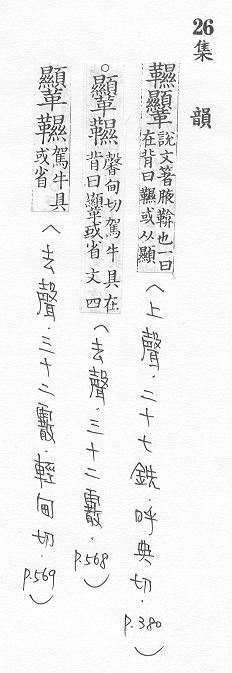 26
集韻
韅
說文著腋鞥也一曰
在背曰 或从顯
(上聲.二十七銑.呼典切.P.380)
○韅
馨甸切駕牛具在
背曰韅或省文四
(去聲.三十二霰.P.568)
韅
駕牛具
或省
(去聲.三十二霰.輕甸切.P.569)